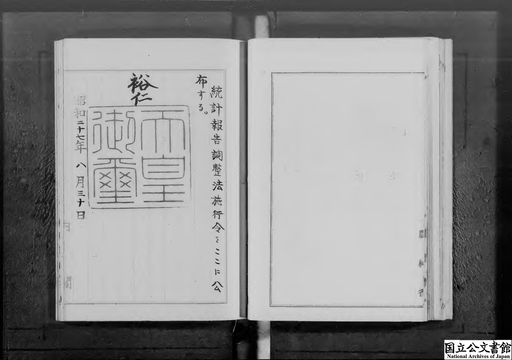 統計報告調整法施行令をここに公
布する。
裕仁
天皇
御璽
昭和二十七年八月三十日
内閣
国立公文書館
National Archives of Japan